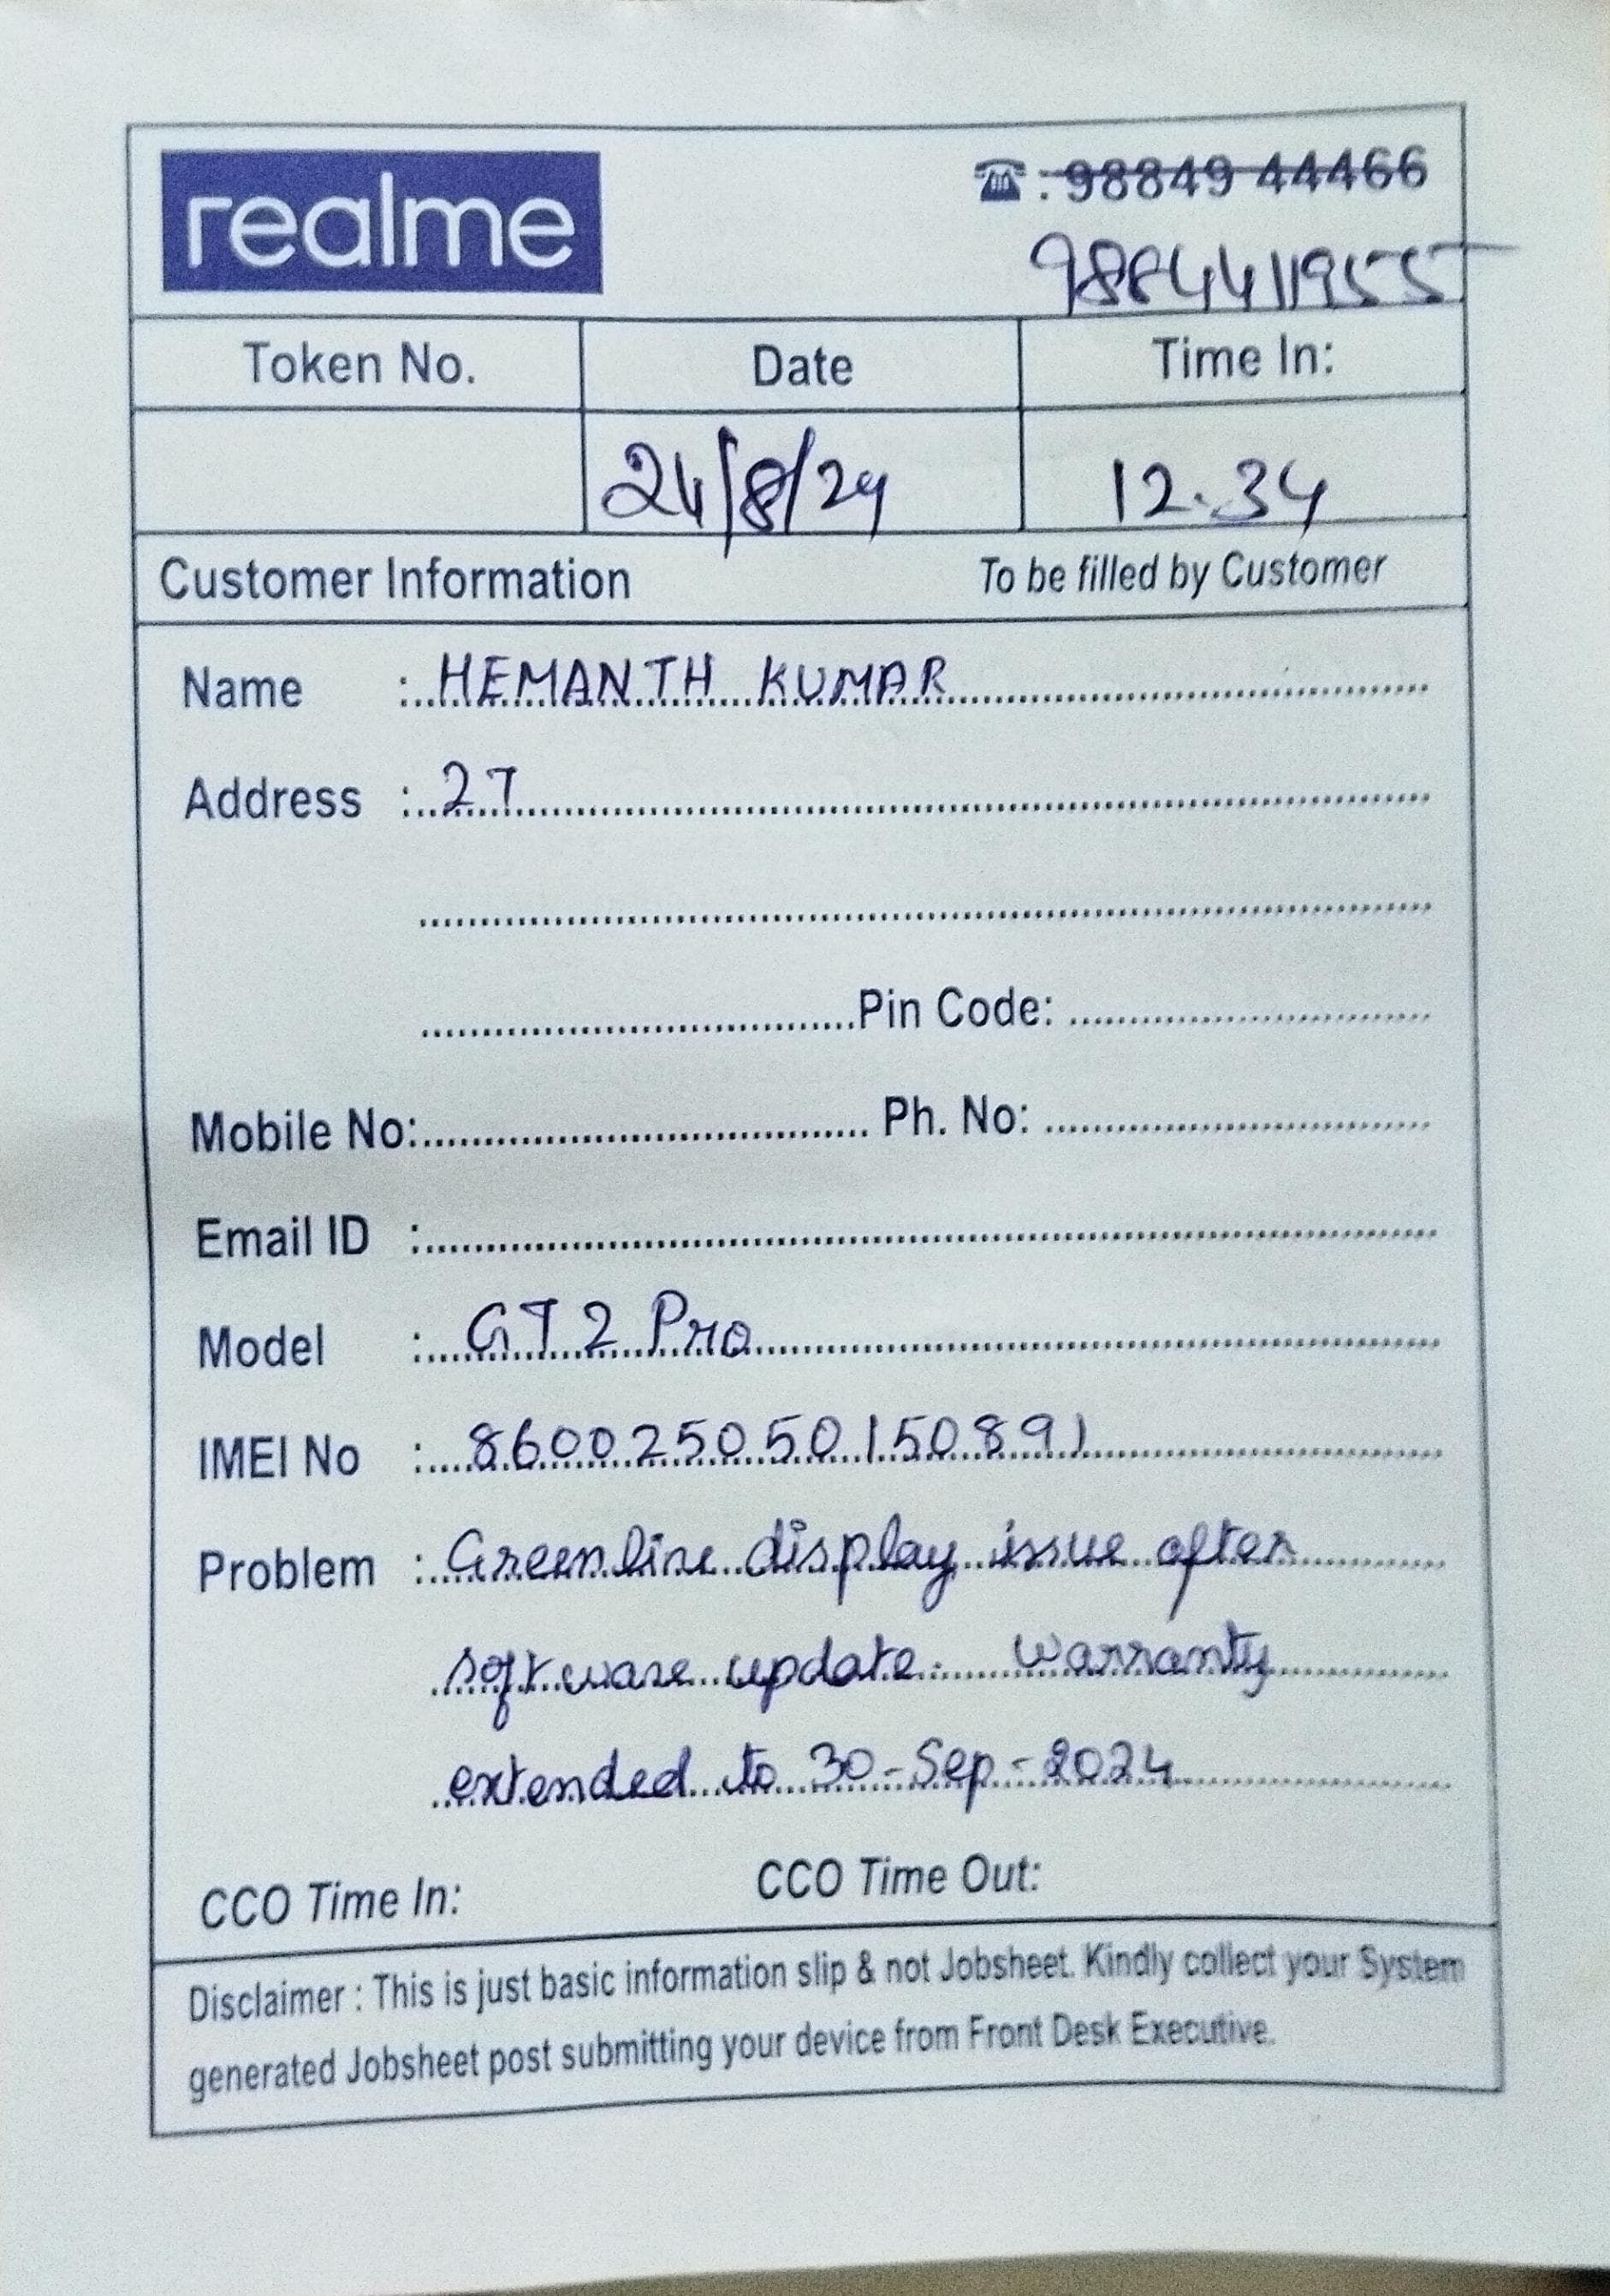 realme
☎: 98849 44466
9884411955
Token No. Date Time In:
24/8/24 12.34
Customer Information To be filled by Customer
Name : HEMANTH KUMAR
Address : 27
Pin Code:
Mobile No: Ph. No:
Email ID :
Model : GT 2 Pro
IMEI No : 860025050150891
Problem : Greenline display issue after
software update. Warranty
extended to 30-Sep-2024
CCO Time In: CCO Time Out:
Disclaimer : This is just basic information slip & not Jobsheet. Kindly collect your System
generated Jobsheet post submitting your device from Front Desk Executive.